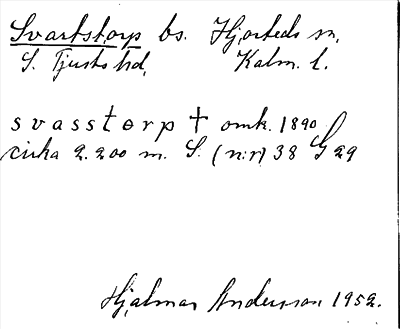 Svartstorp bs. Hjorteds sn,
S. Tjusts hd, Kalm. l.
svasstorp † omk. 1890
cirka 2.200 m. S. (n:r) 38 G 29
Hjalmar Andersson 1952.